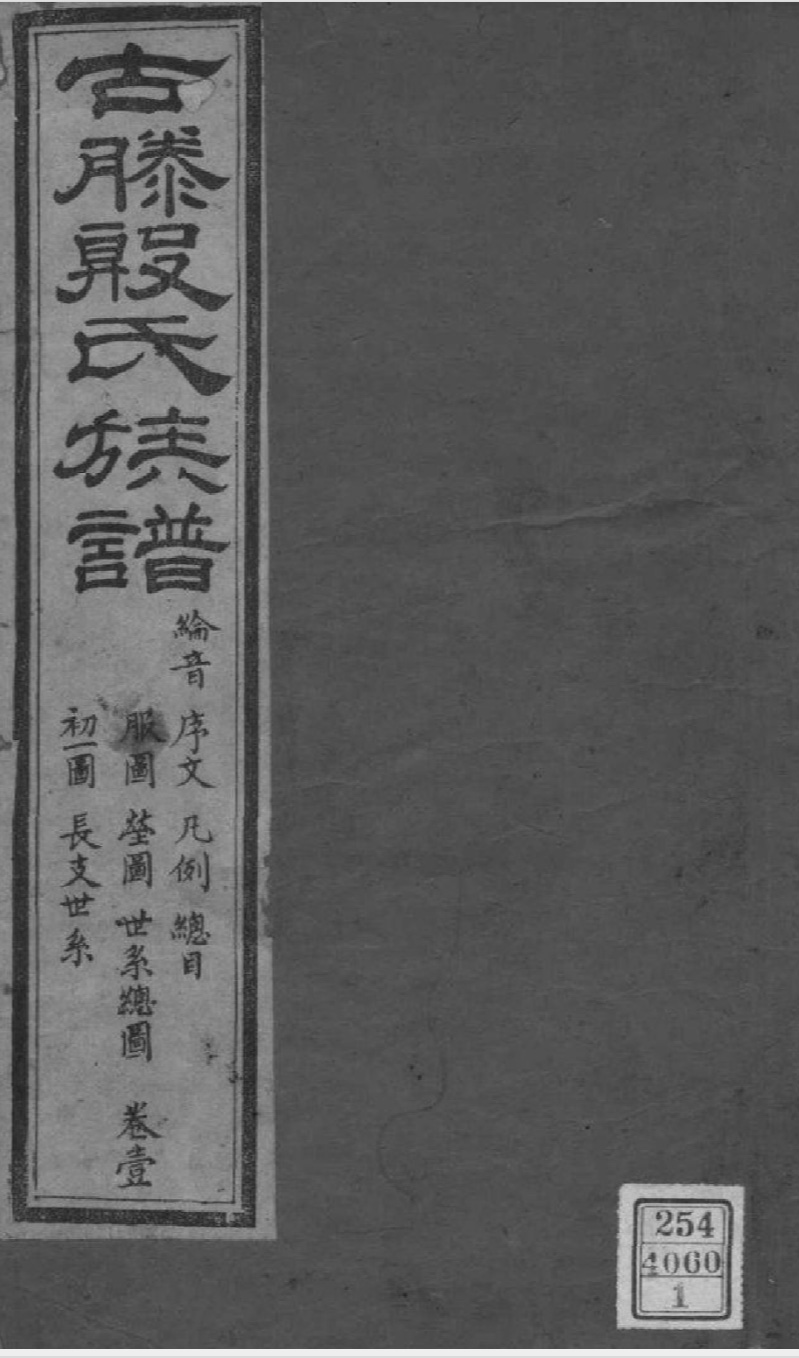 古滕殷氏族譜
綸音 序文 凡例 總目
服圖 塋圖 世系總圖 卷壹
初一圖 長支世系
254
4060
1